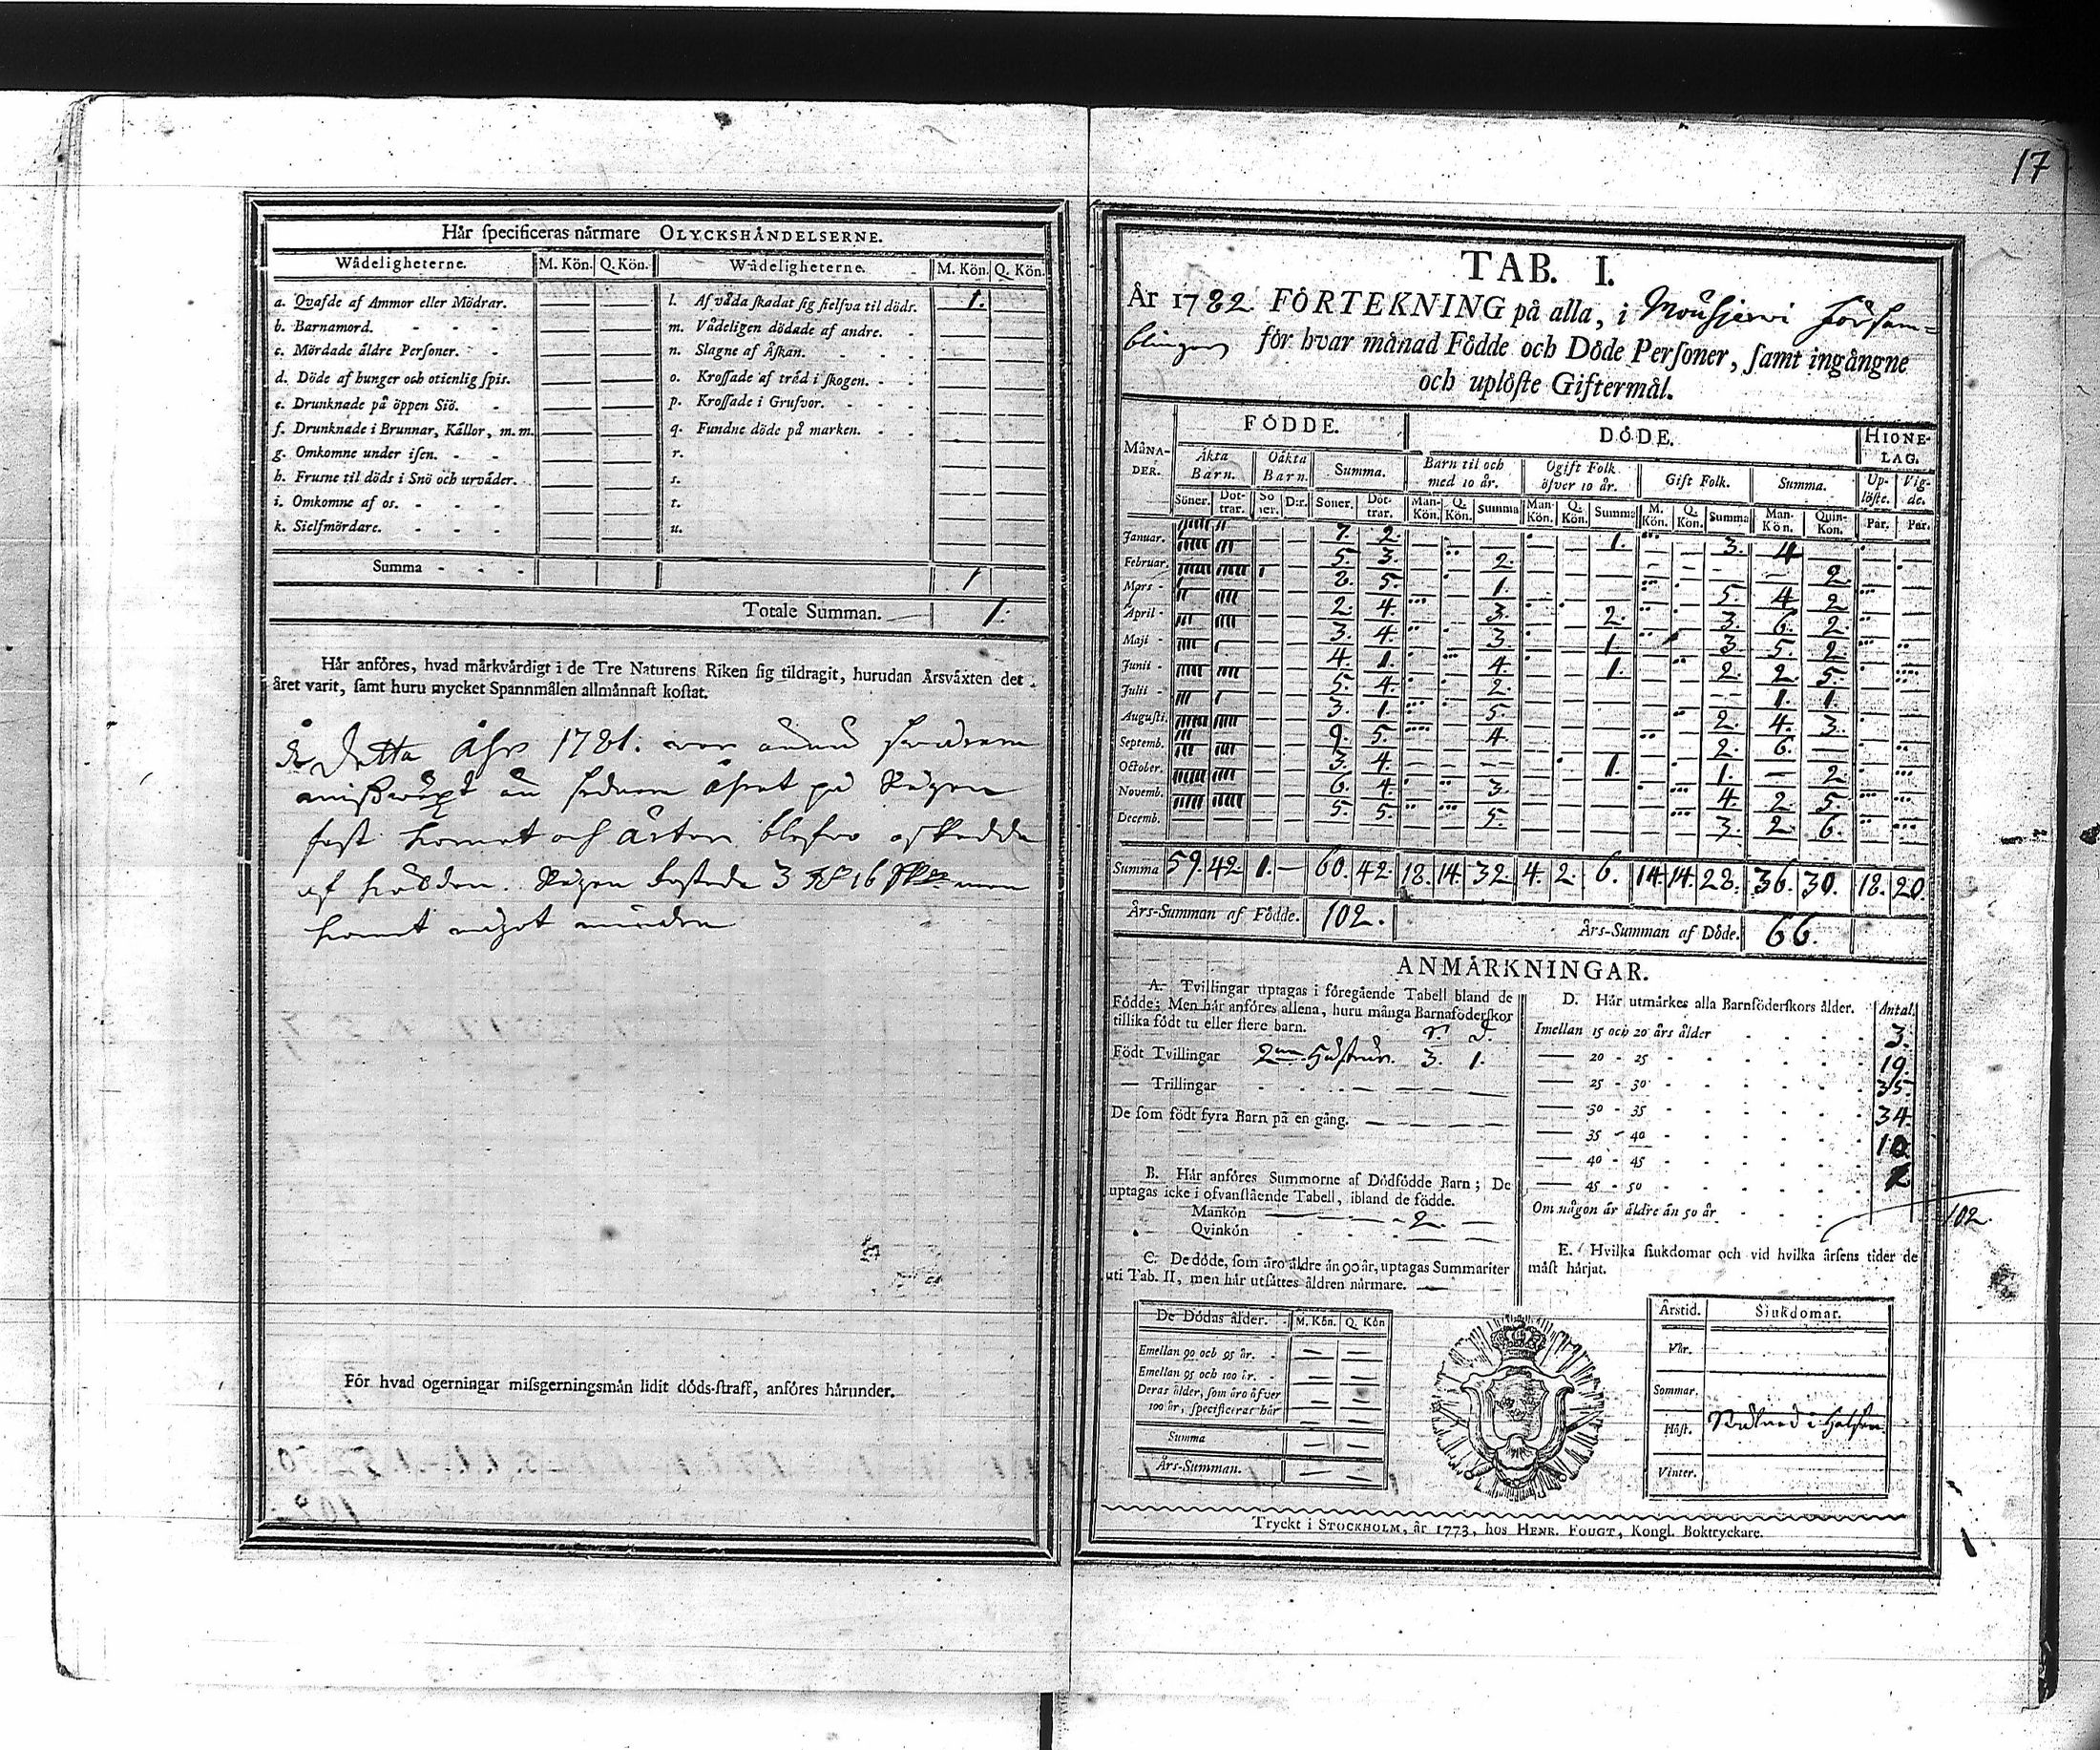 17
Här specificeras närmare OLYCKSHÄNDELSERNE.
Wådeligheterne. M. Kön. Q. Kön. Wådeligheterne. M. Kön. Q. Kön.
a. Qvafde af Ammor eller Mödrar. — — l. Af våda skadat sig sielfva til döds. 1. —
b. Barnamord. — — m. Vådeligen dödade af andre. — —
c. Mördade äldre Personer. — — n. Slagne af Åskan. — —
d. Döde af hunger och otienlig spis. — — o. Krossade af träd i skogen. — —
e. Drunknade på öppen Siö. — — p. Krossade i Grufvor. — —
f. Drunknade i Brunnar, Källor, m. m. — — q. Fundne döde på marken. — —
g. Omkomne under isen. — — r. — —
h. Frusne til döds i Snö och urväder. — — s. — —
i. Omkomne af os. — — t. — —
k. Sielfmördare. — — u. — —
Summa 1
Totale Summan. 1.
Här anföres, hvad märkvärdigt i de Tre Naturens Riken sig tildragit, hurudan Årsväxten det
året varit, samt huru mycket Spannmålen allmännast kostat.
Detta Åhr 1781. var
missväxt än åhret på Rågen
fast kornet och ärter blefvo oskadde
af kölden. Rågen kostade 3 16 men
kornet något mindre
För hvad ogerningar missgerningsmän lidit döds-straff, anföres härunder.
TAB. I.
År 1782 FÖRTEKNING på alla, i Mouhijervi Försam=
blingen för hvar månad Födde och Döde Personer, samt ingångne
och uplöste Giftermål.
FÖDDE. DÖDE. HIONE-
LAG.
MÅNA-
DER. Äkta
Barn. Oäkta
Barn. Summa. Barn til och
med 10 år. Ogift Folk
öfver 10 år. Gift Folk. Summa. Up-
löste. Vig-
de.
Söner. Döt-
trar. Sö
ner. D:r. Söner. Döt-
trar. Man-
Kön. Q.
Kön. Summa Man-
Kön. Q.
Kön. Summa M.
Kön. Q.
Kön. Summa Man-
Kön. Quin-
Kön. Par. Par.
Januar. 7. 2. — 1. 3. 4 —
Februar. 5. 3. 2. — — — 2
Mars 8. 5. 1. — 5. 4 2
April 2. 4. 3. 2. 3. 6. 2
Maji 3. 4. 3. 1. 3. 5. 2
Junii 4. 1. 4. 1. 2. 2. 5.
Julii 5. 4. 2. — — 1. 1.
Augusti. 3. 1. 5. — 2. 4. 3.
Septemb. 9. 5. 4. — 2. 6. —
October. 3. 4. — 1. 1. — 2
Novemb. 6. 4. 3. — 4. 2. 5.
Decemb. 5. 5. 5. — 3. 2. 6.
Summa 59. 42. 1. — 60. 42. 18. 14. 32. 4. 2. 6. 14. 14. 28. 36. 30. 18. 20.
Års-Summan af Födde. 102. Års-Summan af Döde. 66.
ANMÄRKNINGAR.
A. Tvillingar uptagas i föregående Tabell bland de
Födde; Men här anföres allena, huru många Barnaföderskor
tillika födt tu eller flere barn. S. D.
Födt Tvillingar 2ne Hustrur. 3. 1.
— Trillingar — — —
De som födt fyra Barn på en gång. — — — —
B. Här anföres Summorne af Dödfödde Barn; De
uptagas icke i ofvanstående Tabell, ibland de födde.
Mankön 2.
Qvinkön
C. De döde, som äro äldre än 90 år, uptagas Summariter
uti Tab. II, men här utsättes åldren närmare. —
De Dödas ålder. M. Kön. Q. Kön
Emellan 90 och 95 år. — —
Emellan 95 och 100 år. — —
Deras ålder, som äro öfver
100 år, specificeras här — —
Summa — —
Års-Summan. — —
D. Här utmärkes alla Barnföderskors ålder. Antal.
Imellan 15 och 20 års ålder 3.
— 20 - 25 19.
— 25 - 30 35.
— 30 - 35 34.
— 35 - 40 10
— 40 - 45
— 45 - 50
Om någon är äldre än 50 år 102.
E. Hvilka siukdomar och vid hvilka årsens tider de
mäst härjat.
Årstid. Siukdomar.
Vår.
Sommar.
Höst. i Halsen.
Vinter.
Tryckt i STOCKHOLM, år 1773, hos HENR. FOUGT, Kongl. Boktryckare.